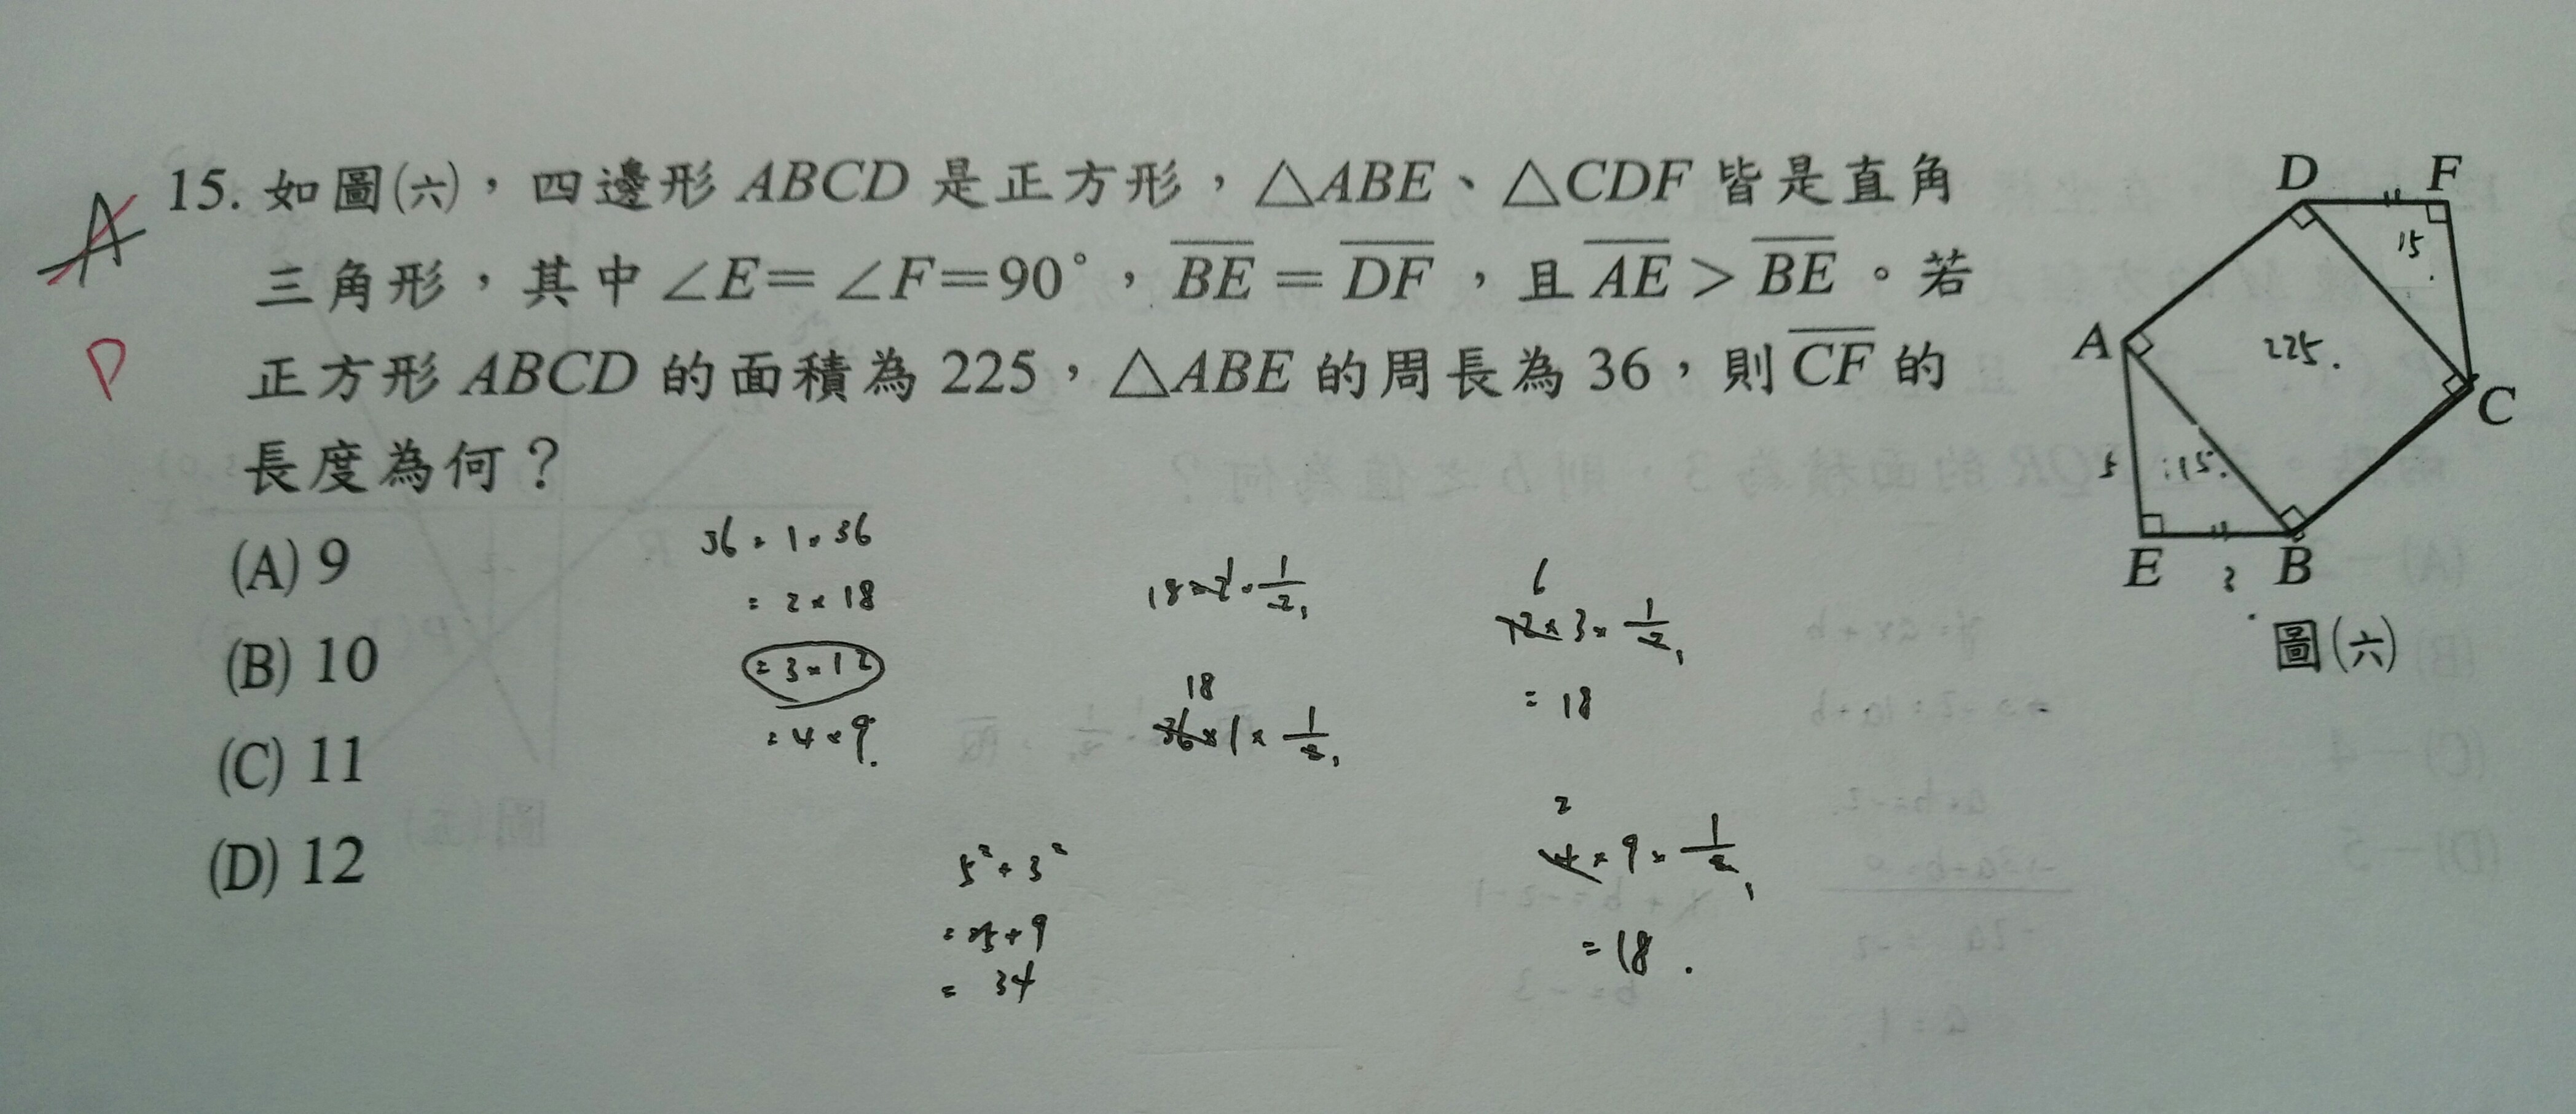 15. 如圖(六)，四邊形 ABCD 是正方形，△ABE、△CDF 皆是直角
三角形，其中∠E=∠F=90°，BE=DF，且 AE>BE。若
正方形 ABCD 的面積為 225，△ABE 的周長為 36，則 CF 的
長度為何？
(A) 9
(B) 10
(C) 11
(D) 12
A
D
36=1×36
=2×18
=3×12
=4×9.
18×2×1/2
18
36×1×1/2
6
12×3×1/2
=18
2
4×9×1/2
=18.
5²+3²
=25+9
=34
D F
15
A
225.
C
5
15.
E B
3
圖(六)